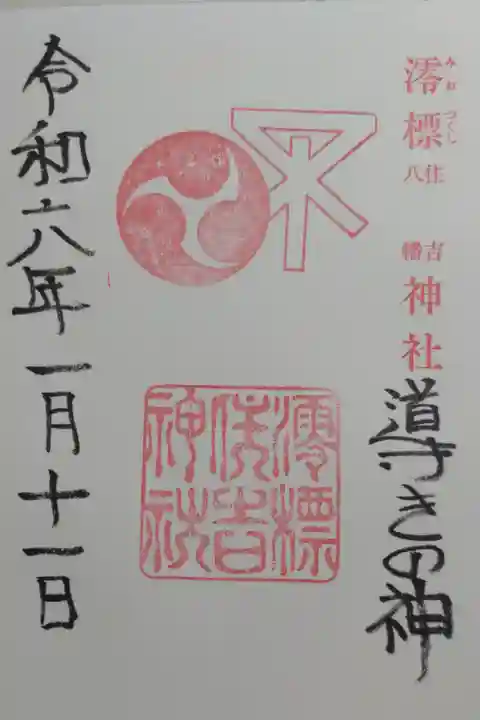 澪標
みお
つくし
住吉
八幡
神社
導きの神
澪標
住吉
神社
令和六年一月十一日